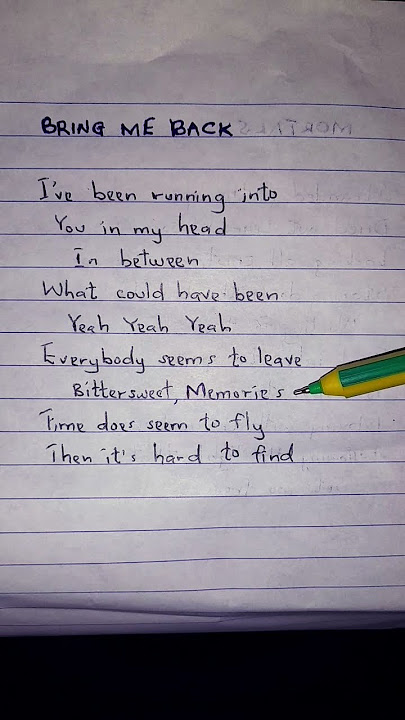 BRING ME BACK
I've been running into
You in my head
In between
What could have been
Yeah Yeah Yeah
Everybody seems to leave
Bittersweet, Memories
Time does seem to fly
Then it's hard to find